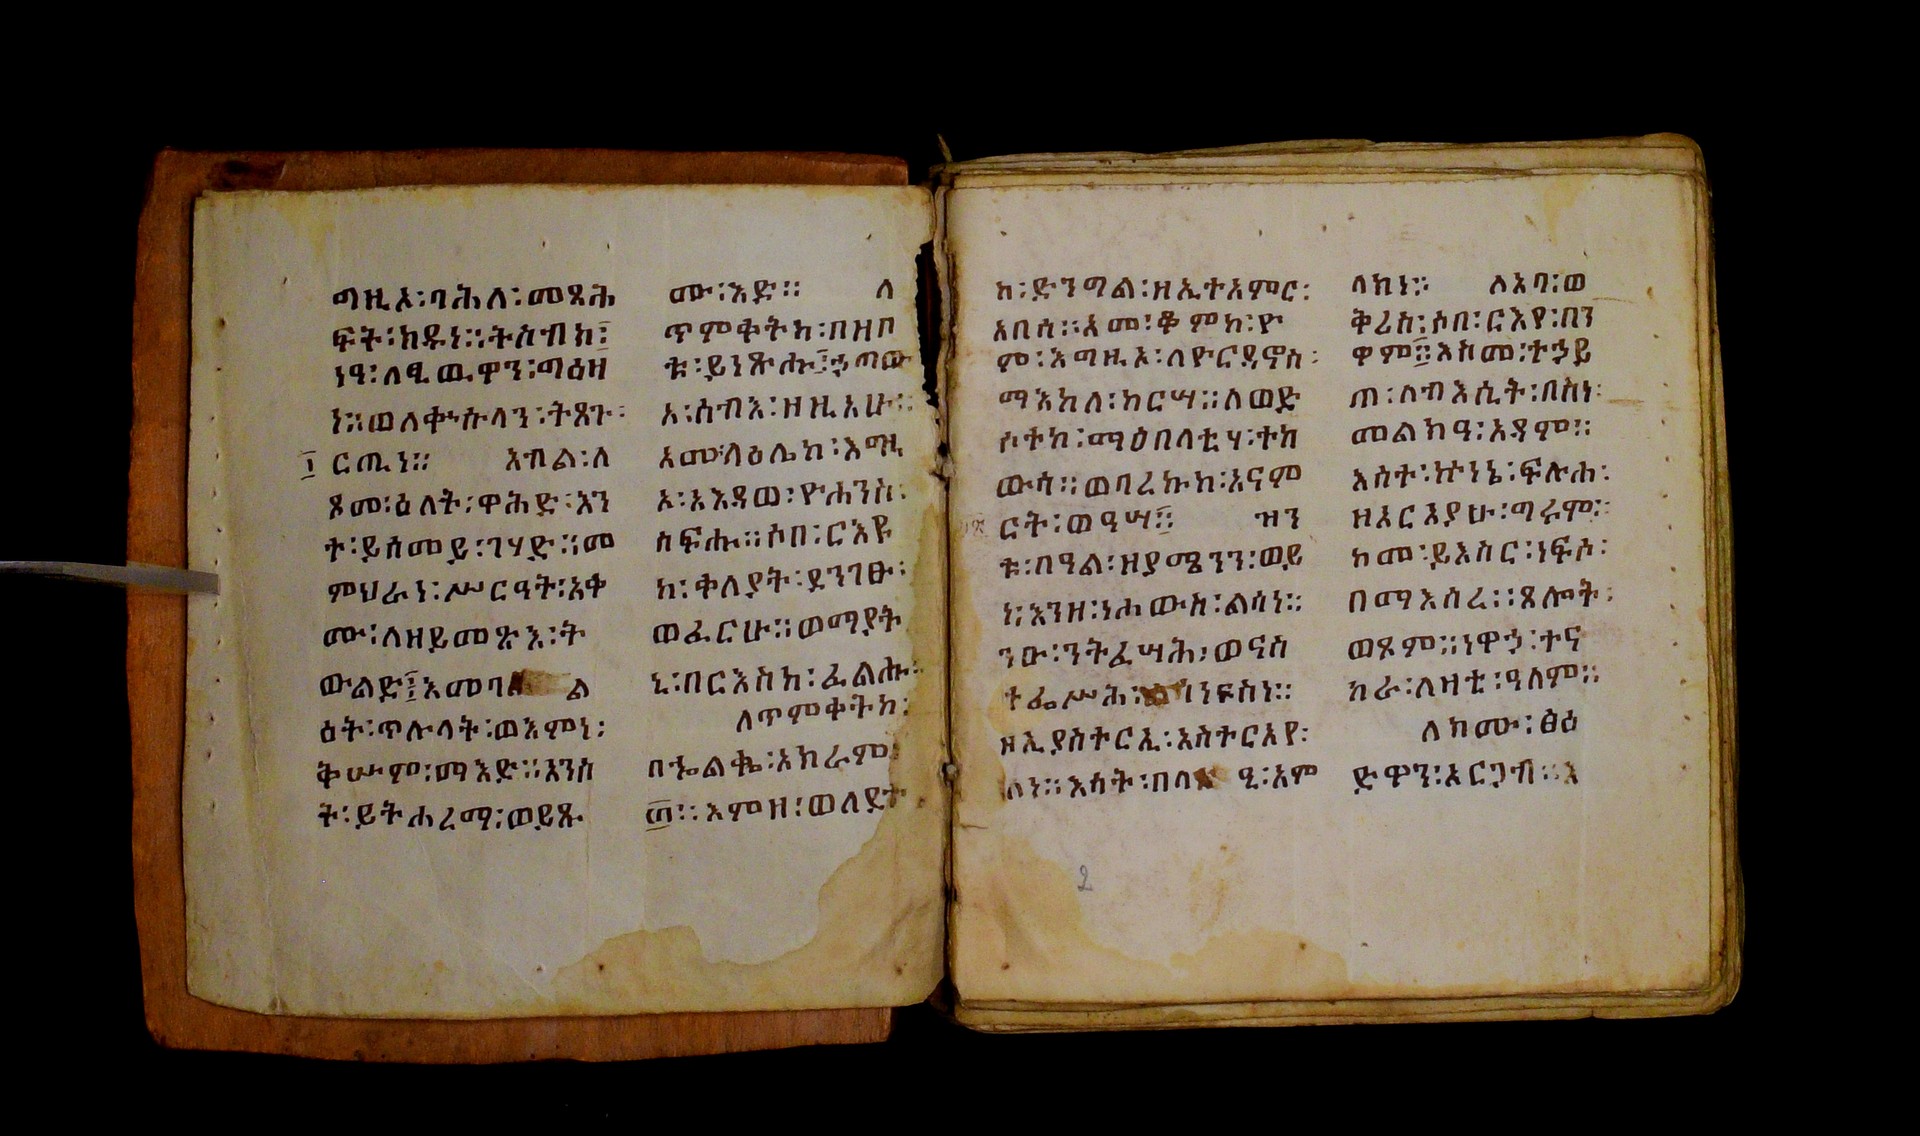 ግዚኦ፡ባሕለ፡መጻሕ
ፍት፡ክዱነ።ትስብክ፤
ነዓ፡ለዒዉዋን፡ግዕዘ
ነ።ወለቍሱላን፡ትጸጉ፡
ርጤነ። እብል፡ለ
ጾመ፡ዕለት፡ዋሕድ፡እን
ተ፡ይሰመይ፡ገሃድ።መ
ምህራነ፡ሥርዓት፡አቀ
ሙ፡ለዘይመጽእ፡ት
ውልድ፤እመባ ል
ዕት፡ጥሉላት፡ወእምነ፡
ቅሡም፡ማእድ።እንስ
ት፡ይትሐረማ፡ወይጹ
ሙ፡እድ። ለ
ጥምቀትከ፡በዘቦ
ቱ፡ይነጽሑ፤ኃጣው
አ፡ሰብእ፡ዘዚአሁ።
አመ፡ላዕሌከ፡እግዚ
ኦ፡አእዳወ፡ዮሐንስ፡
ሰፍሑ።ሶበ፡ርእዩ
ከ፡ቀለያት፡ደንገፁ፡
ወፈርሁ።ወማያት
ኒ፡በርእስከ፡ፈልሑ።
ለጥምቀትከ፡
በጌልጌ፡አክራም
፫።እምዘ፡ወለደት
ከ፡ድንግል፡ዘኢተአምር፡
አበሰ።አመ፡ቆምከ፡ዮ
ም፡እግዚኦ፡ለዮርዳኖስ፡
ማእከለ፡ከርሣ።ለወድ
ሶትከ፡ማዕበላቲሃ፡ተከ
ውሳ።ወባረኩከ፡አናም
ርት፡ወዓሣ። ዝን
ቱ፡በዓል፡ዘያሜንን፡ወይ
ነ፡እንዘ፡ነሐውስ፡ልሳነ።
ንዑ፡ንትፈሣሕ፡ወናስ
ተፌሥሕ፡ ነፍስነ።
ዘኢያስተርኢ፡አስተርአየ፡
ለነ።እሳት፡በላ ዒ፡አም
ላክነ። ለአባ፡ወ
ቅሪስ፡ሶበ፡ርእየ፡በን
ዋም።እስመ፡ተኃይ
ጠ፡ለብእሲት፡በስነ፡
መልክዓ፡አዳም።
እስተ፡ኵነኔ፡ፍሉሐ፡
ዘአርአያሁ፡ግሩም።
ከመ፡ይእስር፡ነፍሶ፡
በማእሰረ።ጸሎት፡
ወጾም።ነዋኃ፡ተና
ከራ፡ለዛቲ፡ዓለም።
ለክሙ፡ፅዕ
ድዋን፡አርጋብ።እ
2